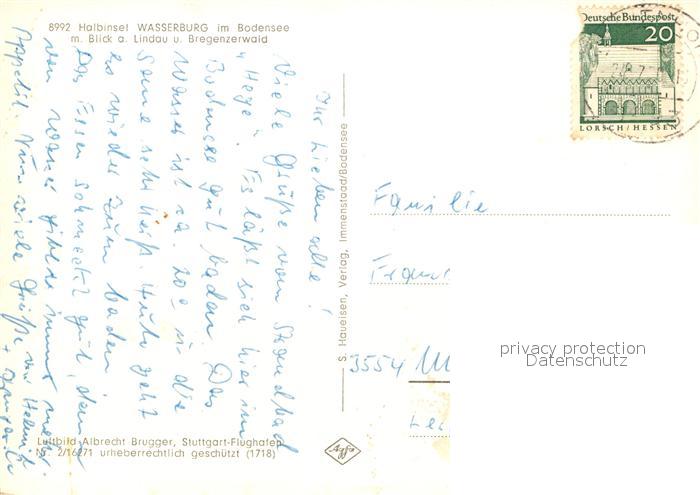 8992 Halbinsel WASSERBURG im Bodensee
m. Blick a. Lindau u. Bregenzerwald
Deutsche Bundespost
20
LORSCH/HESSEN
Ihr Lieben alle!
Viele Grüße vom Strandbad
"Hege". Es läßt sich hier im
Bodensee gut baden. Das
Wasser ist ca. 20° u die
Sonne scheint heiß. Heute geht
es wieder zum baden
Das Essen schmeckt gut, denn
von wandern immer
Appetit. Nun viele Grüße von Helmut
+
S. Haueisen, Verlag, Immenstaad/Bodensee
Familie
3554
privacy protection
Datenschutz
Luftbild Albrecht Brugger, Stuttgart-Flughafen
Nr. 2/16271 urheberrechtlich geschützt (1718)
Agfa